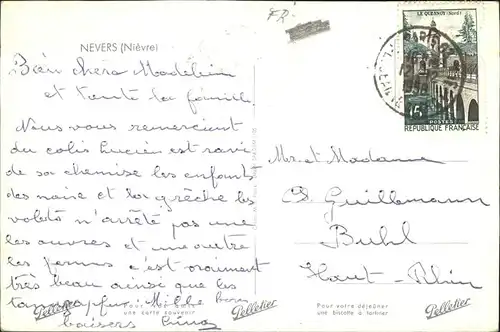 FR
NEVERS (Nièvre)
Bien chère Madeleine
et toute la famille
Nous vous remercient
du colis Lucien est ravi
de sa chemise les enfants
des noix et la crèche les
n'arrête pas une
les ouvres et une autre
les fermes c'est vraiment
très beau ainsi que les
Mille bons
baisers
LE QUESNOY (Nord)
15F
POSTES
RÉPUBLIQUE FRANÇAISE
Mr et Madame
Ch. Guillemann
Buhl
Haut-Rhin
Pelletier
une carte souvenir
Pelletier
Pour votre déjeuner
une biscotte à tartiner
Pelletier